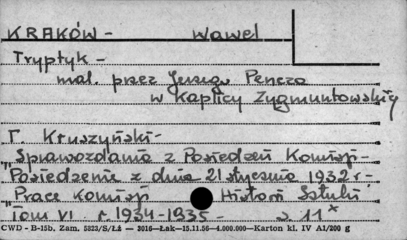 KRAKÓW - Wawel
Tryptyk -
mal. przez Jerzego Pencza
w Kaplicy Zygmuntowskiej
T. Kruszyński -
„Sprawozdania z Posiedzeń Komisji -
Posiedzenie z dnia 21 stycznia 1932 r -
„Prace Komisji Historii Sztuki"
Tom VI. r. 1934-1935 - s. 11*
CWD - B-15b, Zam. 5823/S/Łż — 3016—Łak—15.11.56—4.000.000—Karton kl. IV A1/200 g